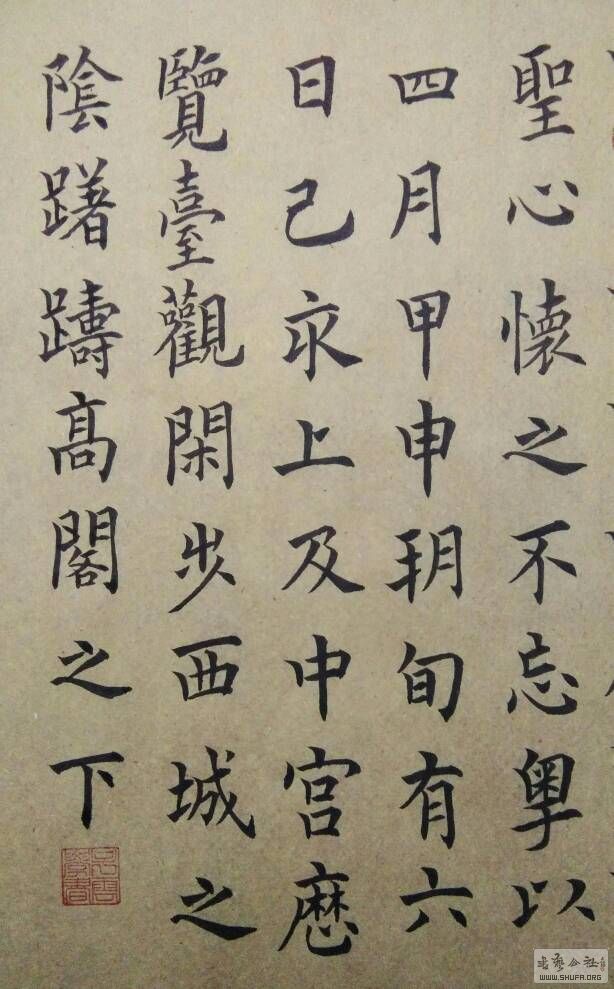 聖心懷之不忘粵以
四月甲申朔旬有六
日己亥上及中宮歷
覽臺觀閑步西城之
陰躇躊高閣之下
书艺公社
WWW.SHUFA.ORG